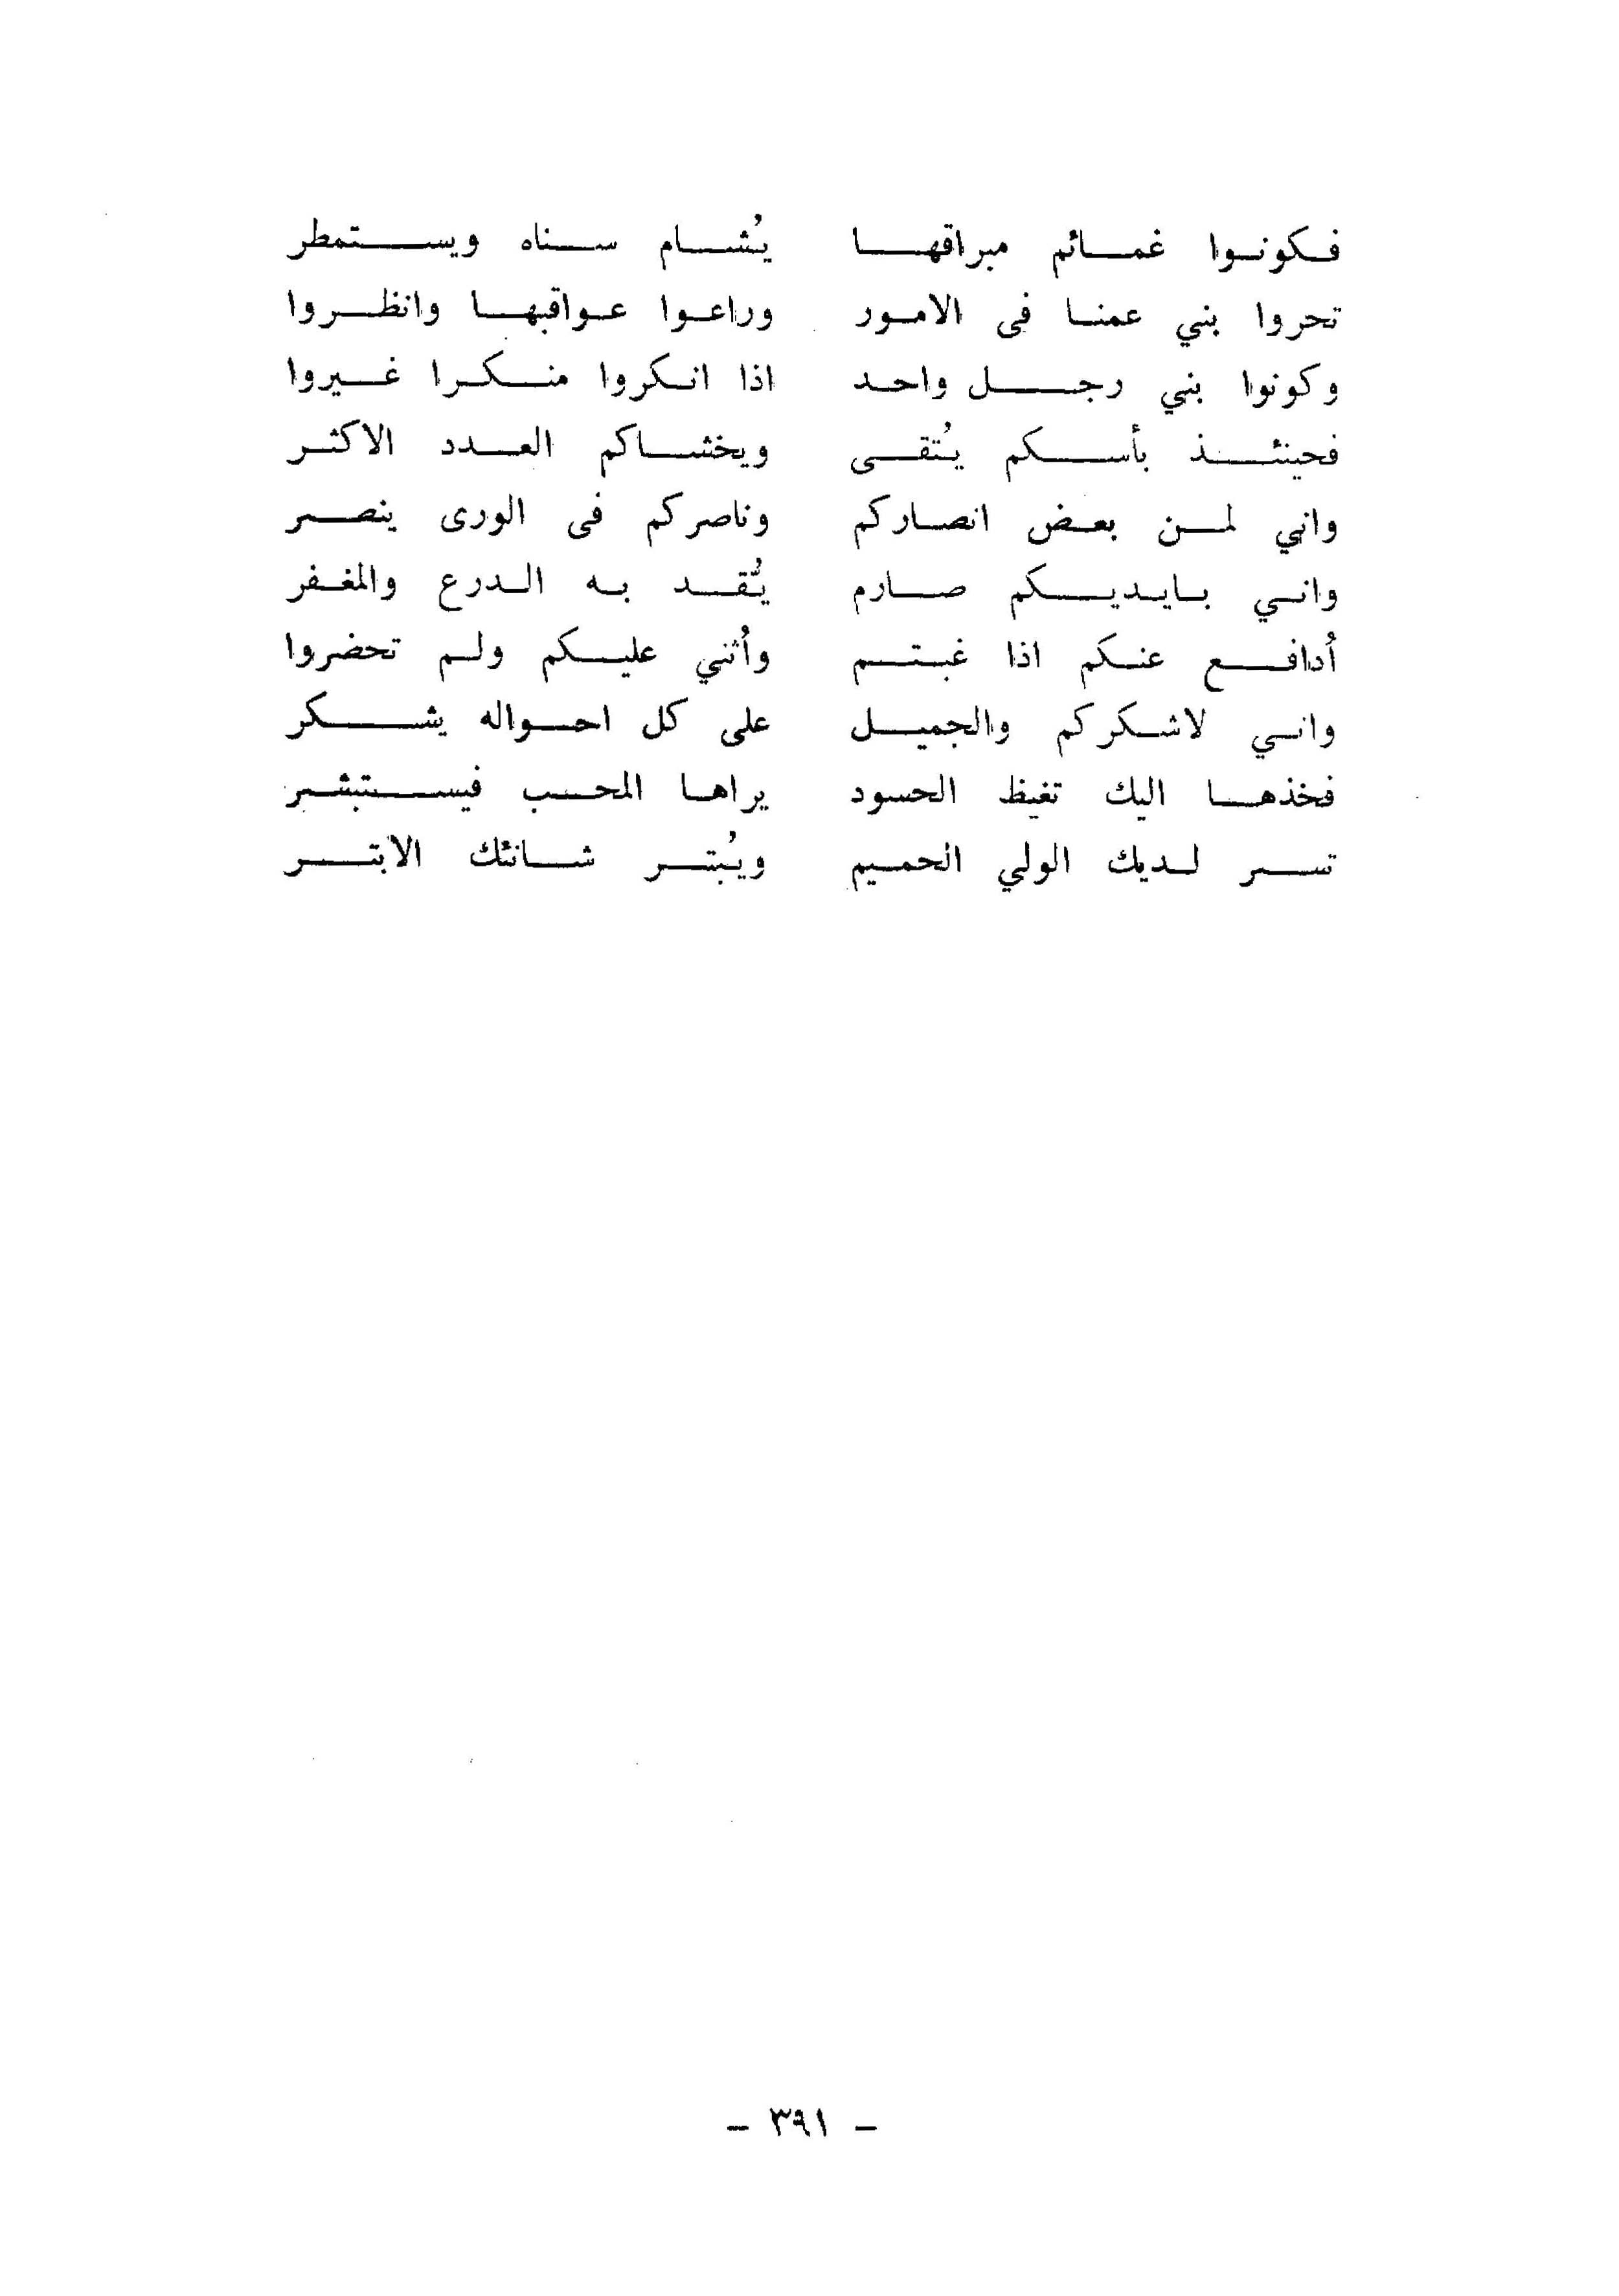 فكونوا غمائم مبراقها يُشام سناه ويستمطر
تحروا بني عمنا فى الامور وراعوا عواقبها وانظروا
وكونوا بني رجل واحد اذا انكروا منكرا غيروا
فحينئذ بأسكم يُتقى ويخشاكم العدد الاكثر
واني لمن بعض انصاركم وناصركم فى الورى ينصر
واني بايديكم صارم يُّقد به الدرع والمغفر
أُدافع عنكم اذا غبتم وأُثني عليكم ولم تحضروا
واني لاشكركم والجميل على كل احواله يشكر
فخذها اليك تغيظ الحسود يراها المحب فيستبشر
تسر لديك الولي الحميم ويُبتر شانئك الابتر
- ٣٩١ -